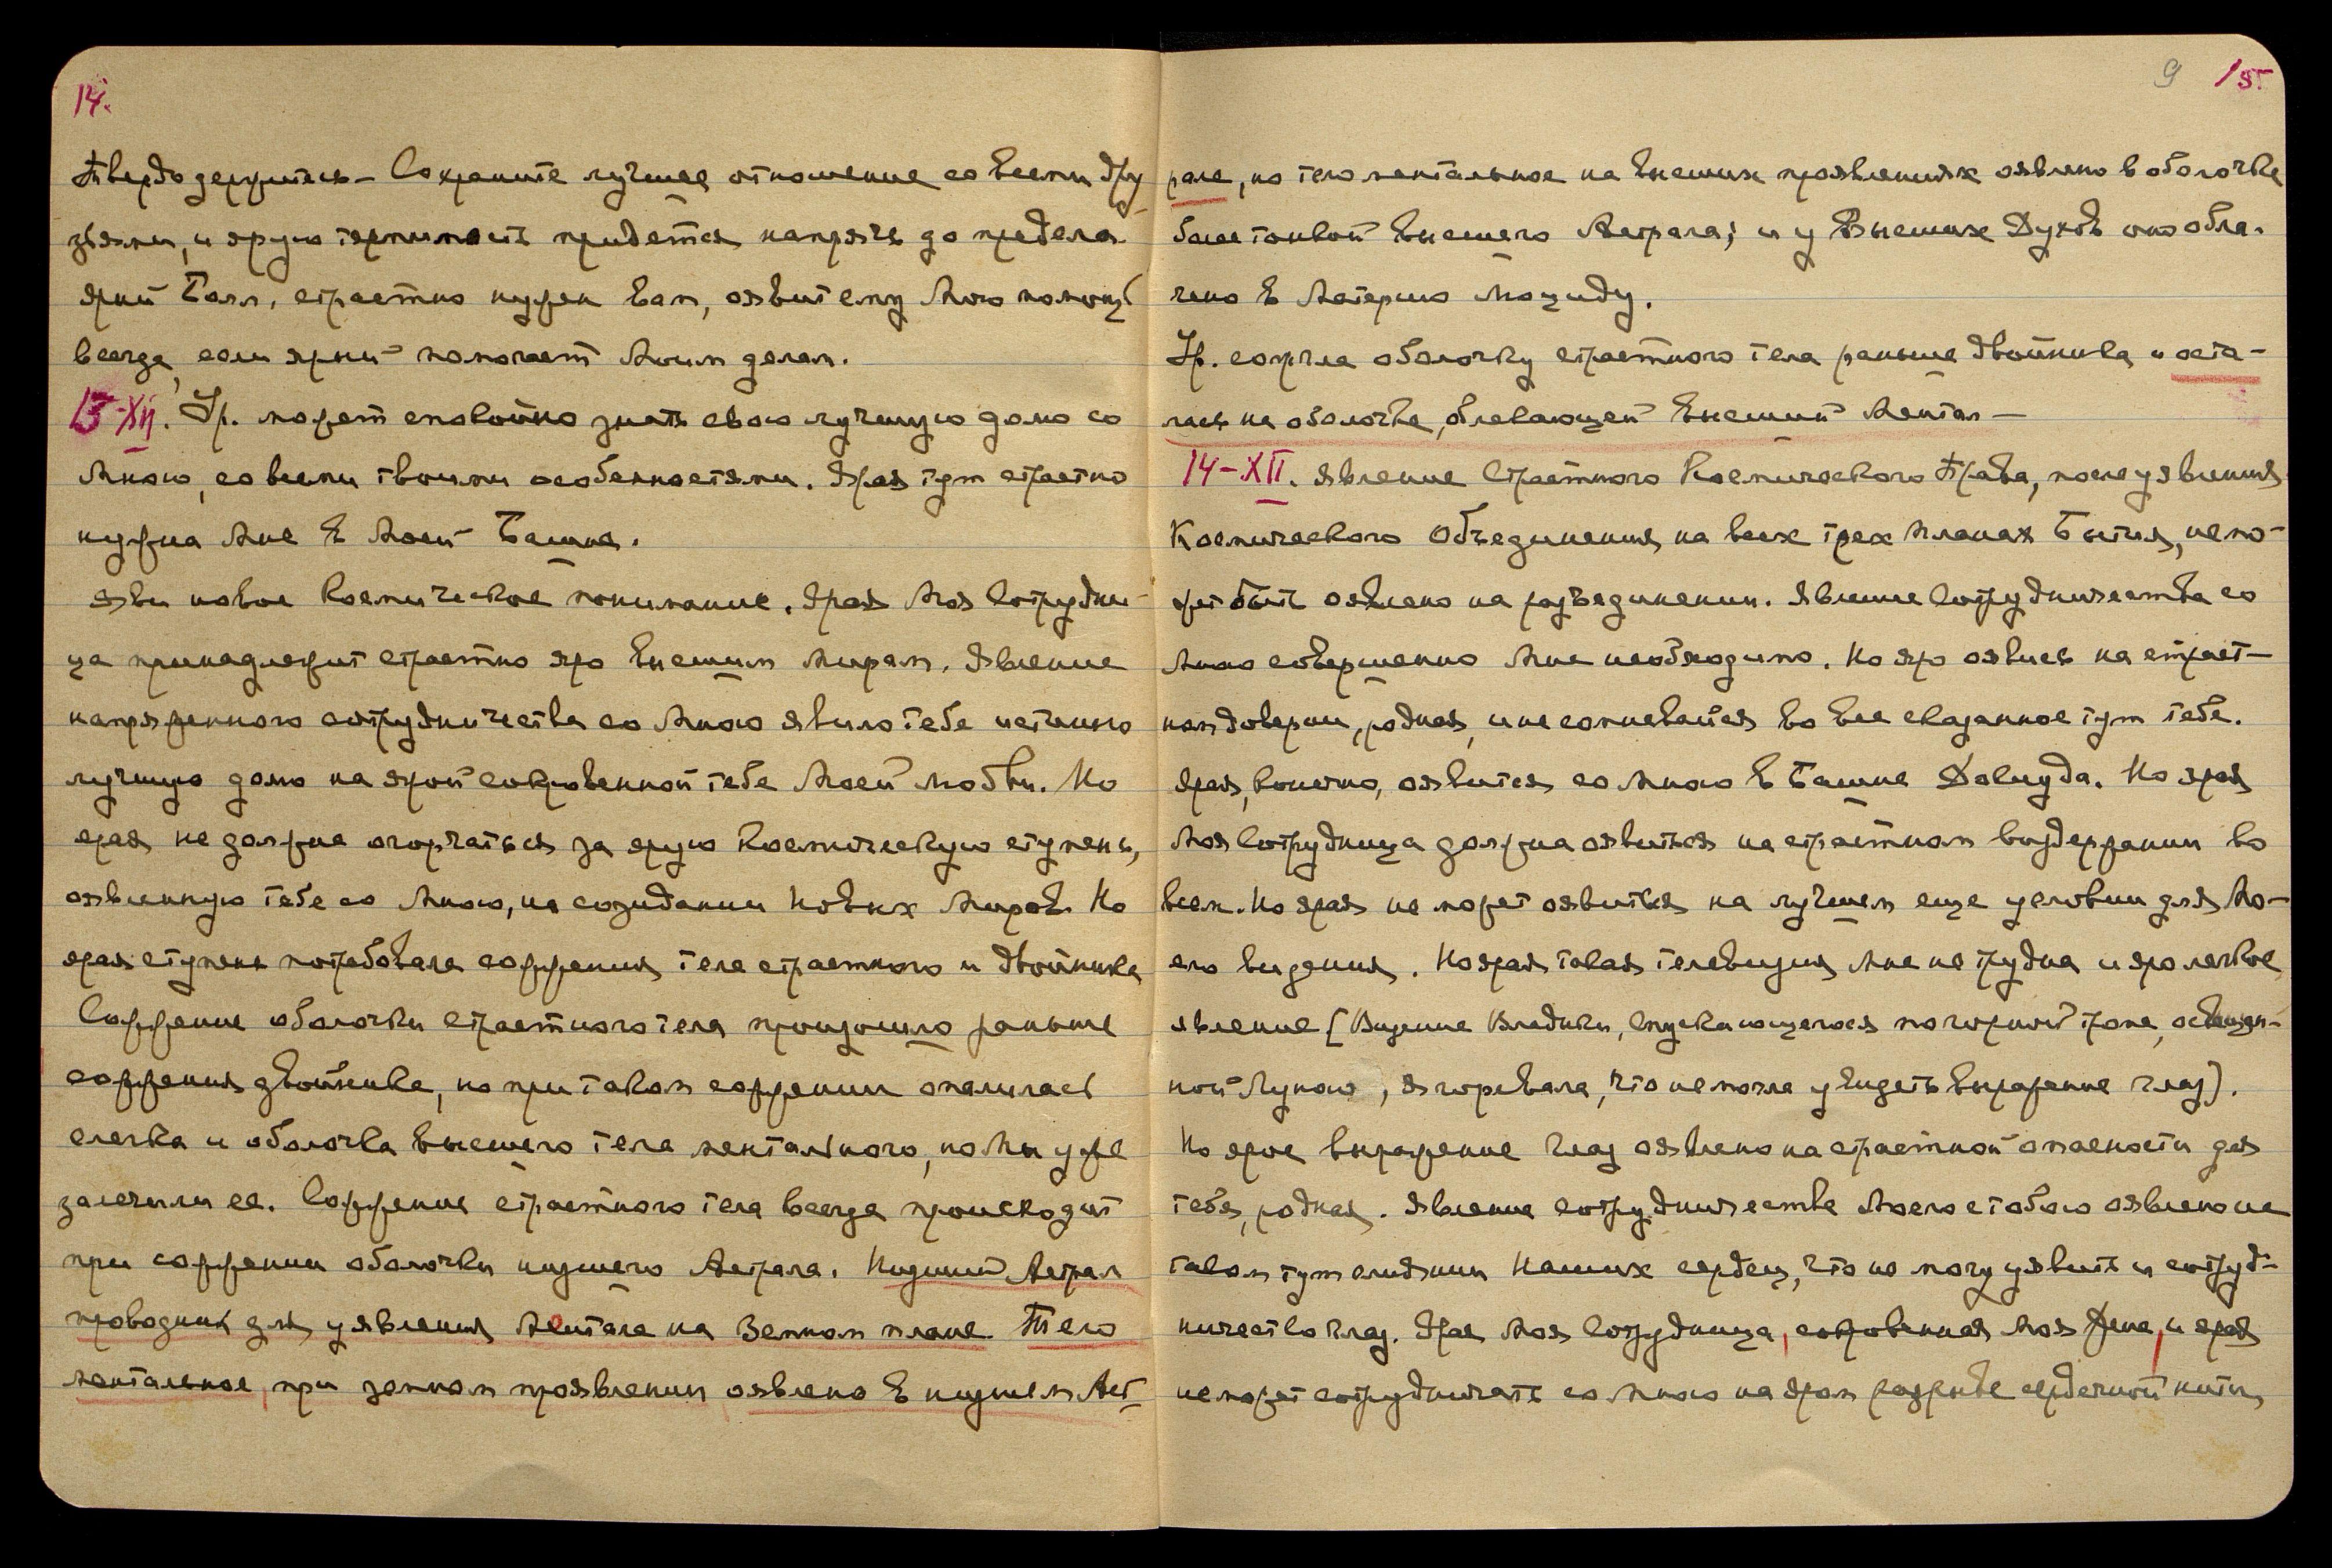 14.
Твердо держитесь – Сохраните лучшее отношение со всеми дру
зьями, и ярую терпимость придется напрячь до предела.
Ярый Балл. страстно нужен вам, оявит ему Мою помощь
всегда, если ярый помогает Моим делам.
13-XII. Ур. может спокойно знать свою лучшую долю со
Мною, со всеми твоими особенностями. Ярая тут страстно
нужна Мне в Моей Башне.
Яви новое Космическое понимание. Ярая Моя Сотрудни-
ца принадлежит страстно яро Высшим Мирам. Явление
напряженного сотрудничества со Мною явило тебе истинно
лучшую долю на ярой сокровенной тебе Моей любви. Но
ярая не должна огорчаться за ярую Космическую ступень,
оявленную тебе со Мною, на созидании Новых Миров. Но
ярая ступень потребовала сожжения тела страстного и двойника
Сожжение оболочки страстного тела произошло раньше
сожжения двойника, но при таком сожжении опалилась
слегка и оболочка высшего тела ментального, но Мы уже
залечили ее. Сожжение страстного тела всегда происходит
при сожжении оболочки низшего Астрала. Низший Астрал
проводник для уявления Ментала на Земном плане. Тело
ментальное, при земном проявлении оявлено в низшем Аст-
9 15.
рале, но тело ментальное на высших проявлениях оявлено в оболочке
более тонкой высшего Астрала; и у Высших Духов оно обла-
чено в Материю Люциду.
Ур. сожгла оболочку страстного тела раньше двойника и оста-
лась на оболочке, облекающей высший Ментал –
14-XII. Явление Страстного Космического Права, после уявления
Космического Объединения, на всех трех планах Бытия, не мо-
жет быть оявлено на разъединении. Явление Сотрудничества со
Мною совершенно Мне необходимо. Но яро оявись на страст-
ном доверии, родная, и не сомневайся во все сказанное тут тебе.
Ярая, конечно, оявится со Мною в Башне Давида. Но ярая
Моя Сотрудница должна оявиться на страстном воздержании во
всем. Но ярая не может оявиться на лучшем еще условии для Мо-
его видения. Но ярая такая телевизия Мне не трудна и яро легкое
явление (Видение Владыки, спускающегося по горной тропе, освещен-
ной Луною, я горевала, что не могла увидеть выражение глаз).
Но ярое выражение глаз оявлено на страстной опасности для
тебя, родная. Явление сотрудничества Моего с тобою оявлено на
таком тут слиянии Наших сердец, что не могу уявить и сотруд-
ничество глаз. Ярая Моя Сотрудница, сокровенная Моя Жена, и ярая
не может сотрудничать со Мною на яром разрыве сердечной нити,